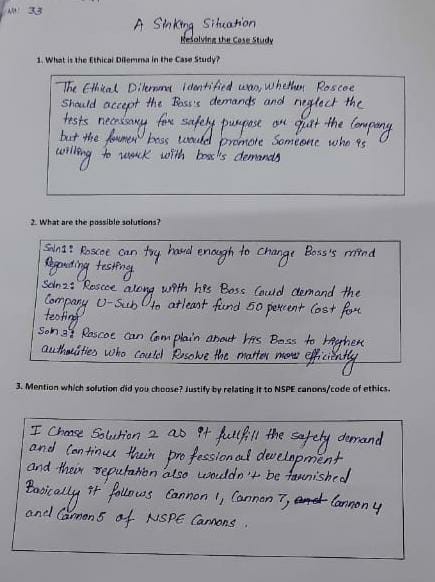 33
A Sinking Situation
Resolving the Case Study
1. What is the Ethical Dilemma in the Case Study?
The Ethical Dilemma identified was, whether Roscoe
should accept the Boss's demands and neglect the
tests necessary for safety purpose or quit the Company
but the former boss would promote Someone who is
willing to work with boss's demands
2. What are the possible solutions?
Soln1: Roscoe can try hard enough to change Boss's mind
Regarding testing
Soln2: Roscoe along with his Boss Could demand the
Company U-Sub to atleast fund 50 percent Cost for
testing
Soln3: Roscoe can Complain about his Boss to higher
authorities who could Resolve the matter more efficiently
3. Mention which solution did you choose? Justify by relating it to NSPE canons/code of ethics.
I Choose Solution 2 as it fullfill the safety demand
and Continue their professional development
and their reputation also wouldn't be tarnished
Basically it follows Cannon 1, Cannon 7, and Cannon 4
and Cannon 5 of NSPE Cannons.